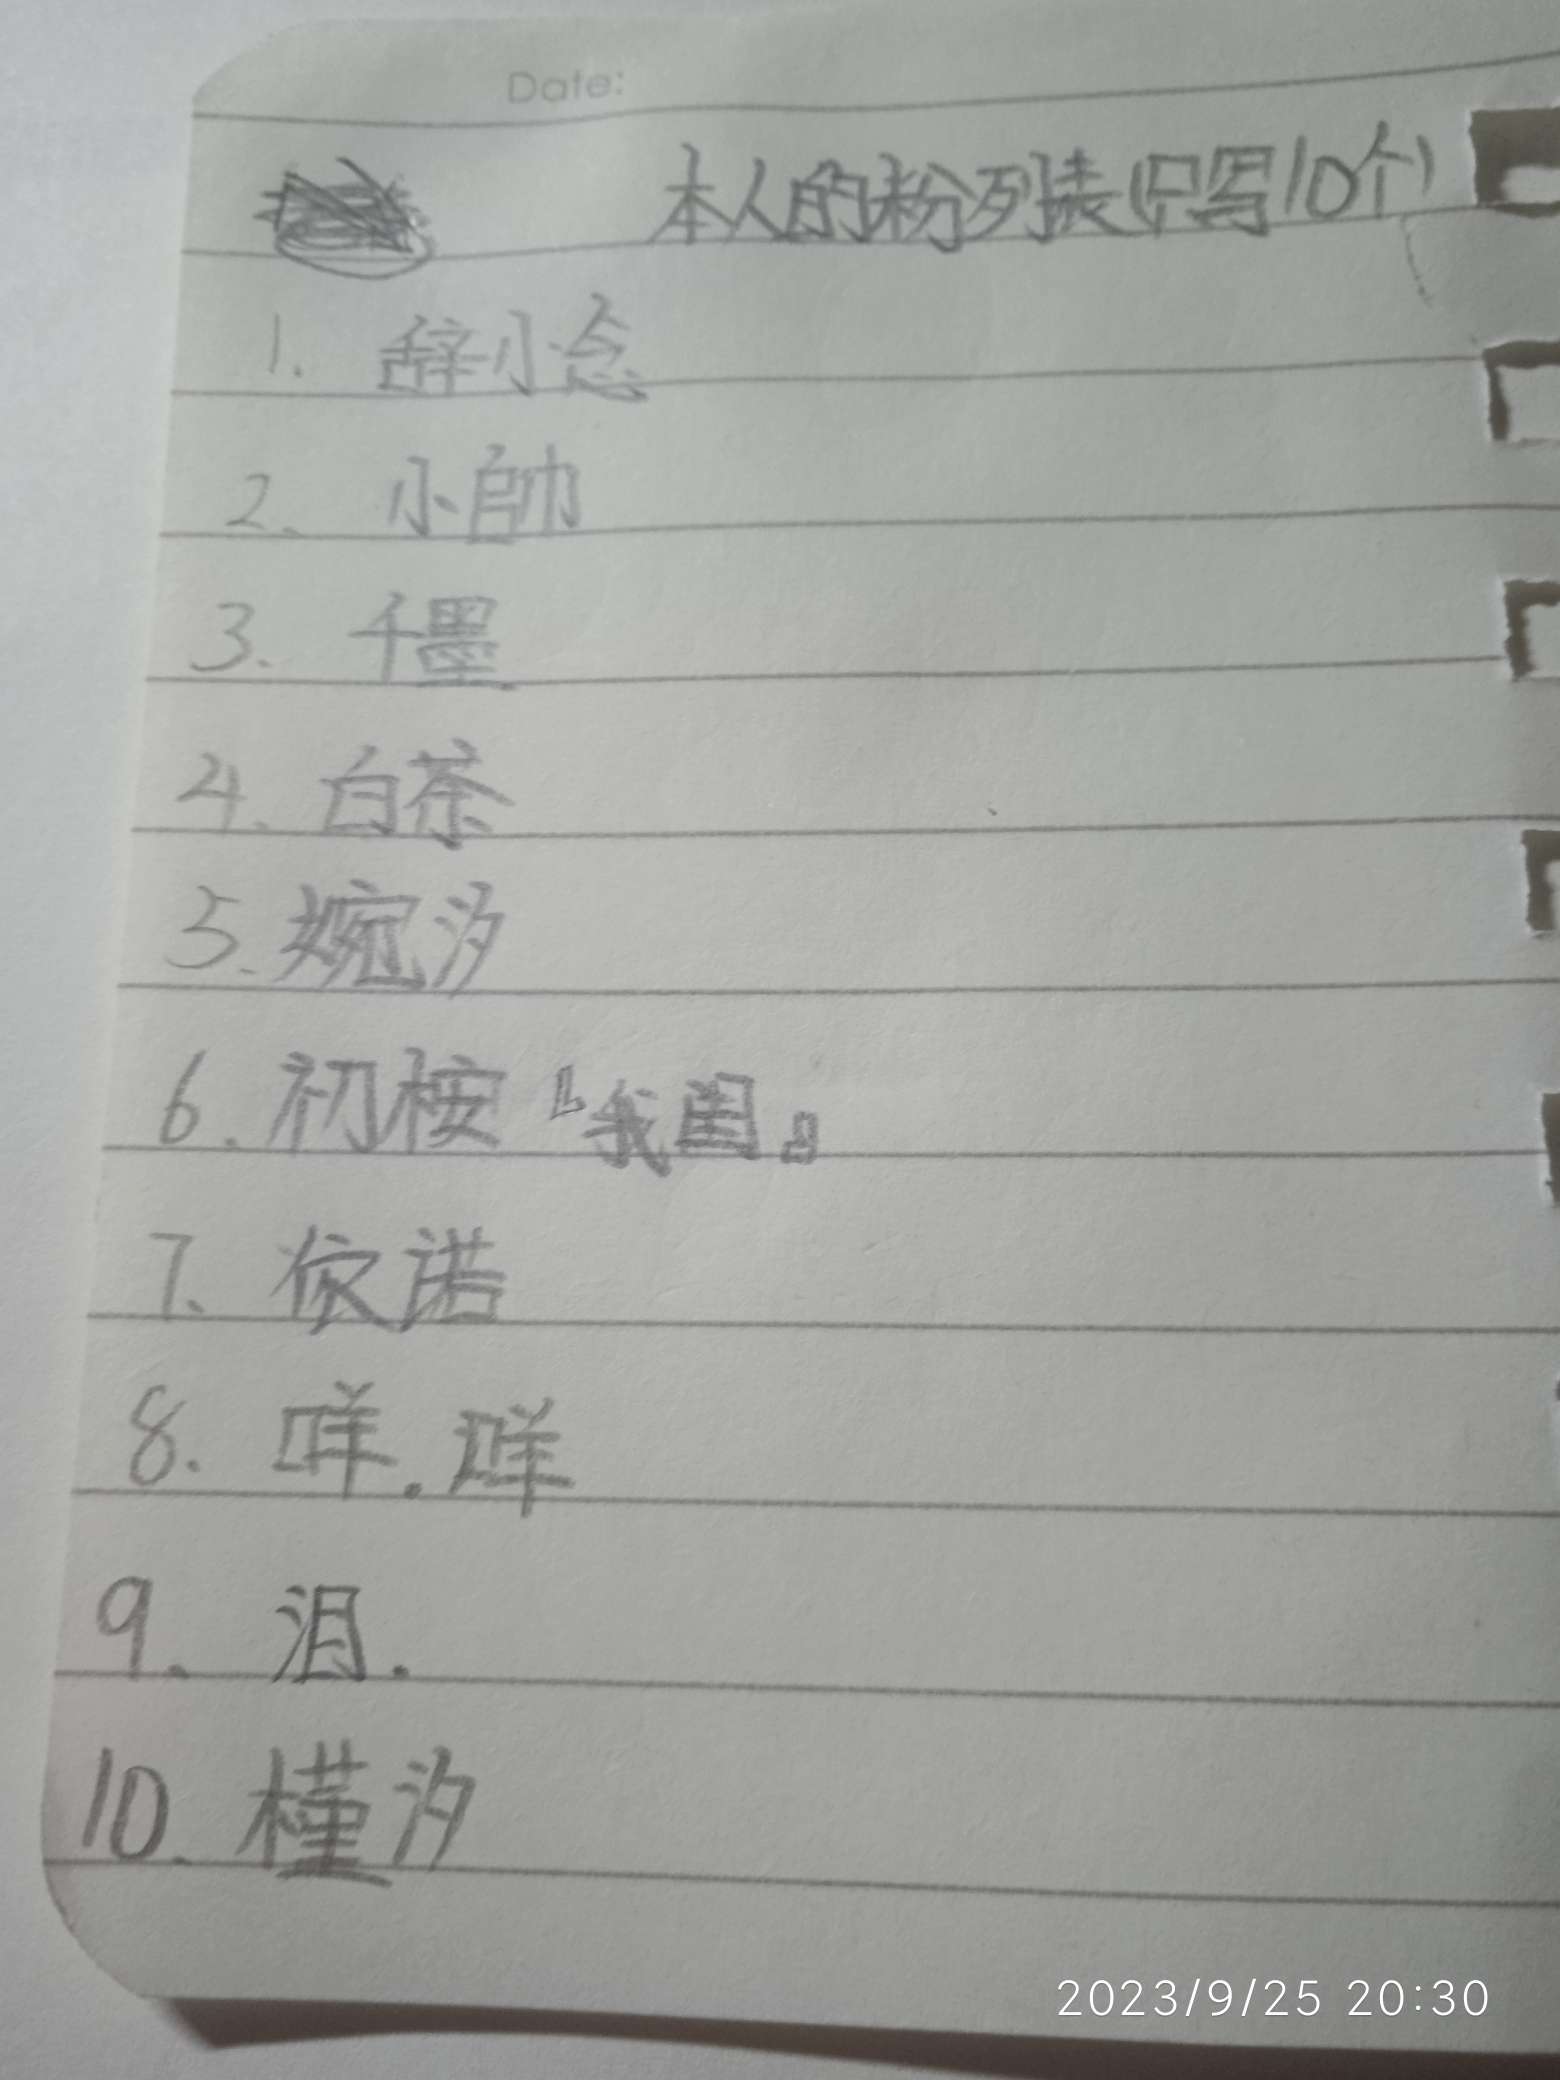 Date:
本人的粉列表(只写10个)
1. 辞小念
2. 小帥
3. 千墨
4. 白茶
5. 婉汐
6. 初桉『我闺』
7. 依诺
8. 咩.咩
9. 泪.
10. 槿汐
2023/9/25 20:30